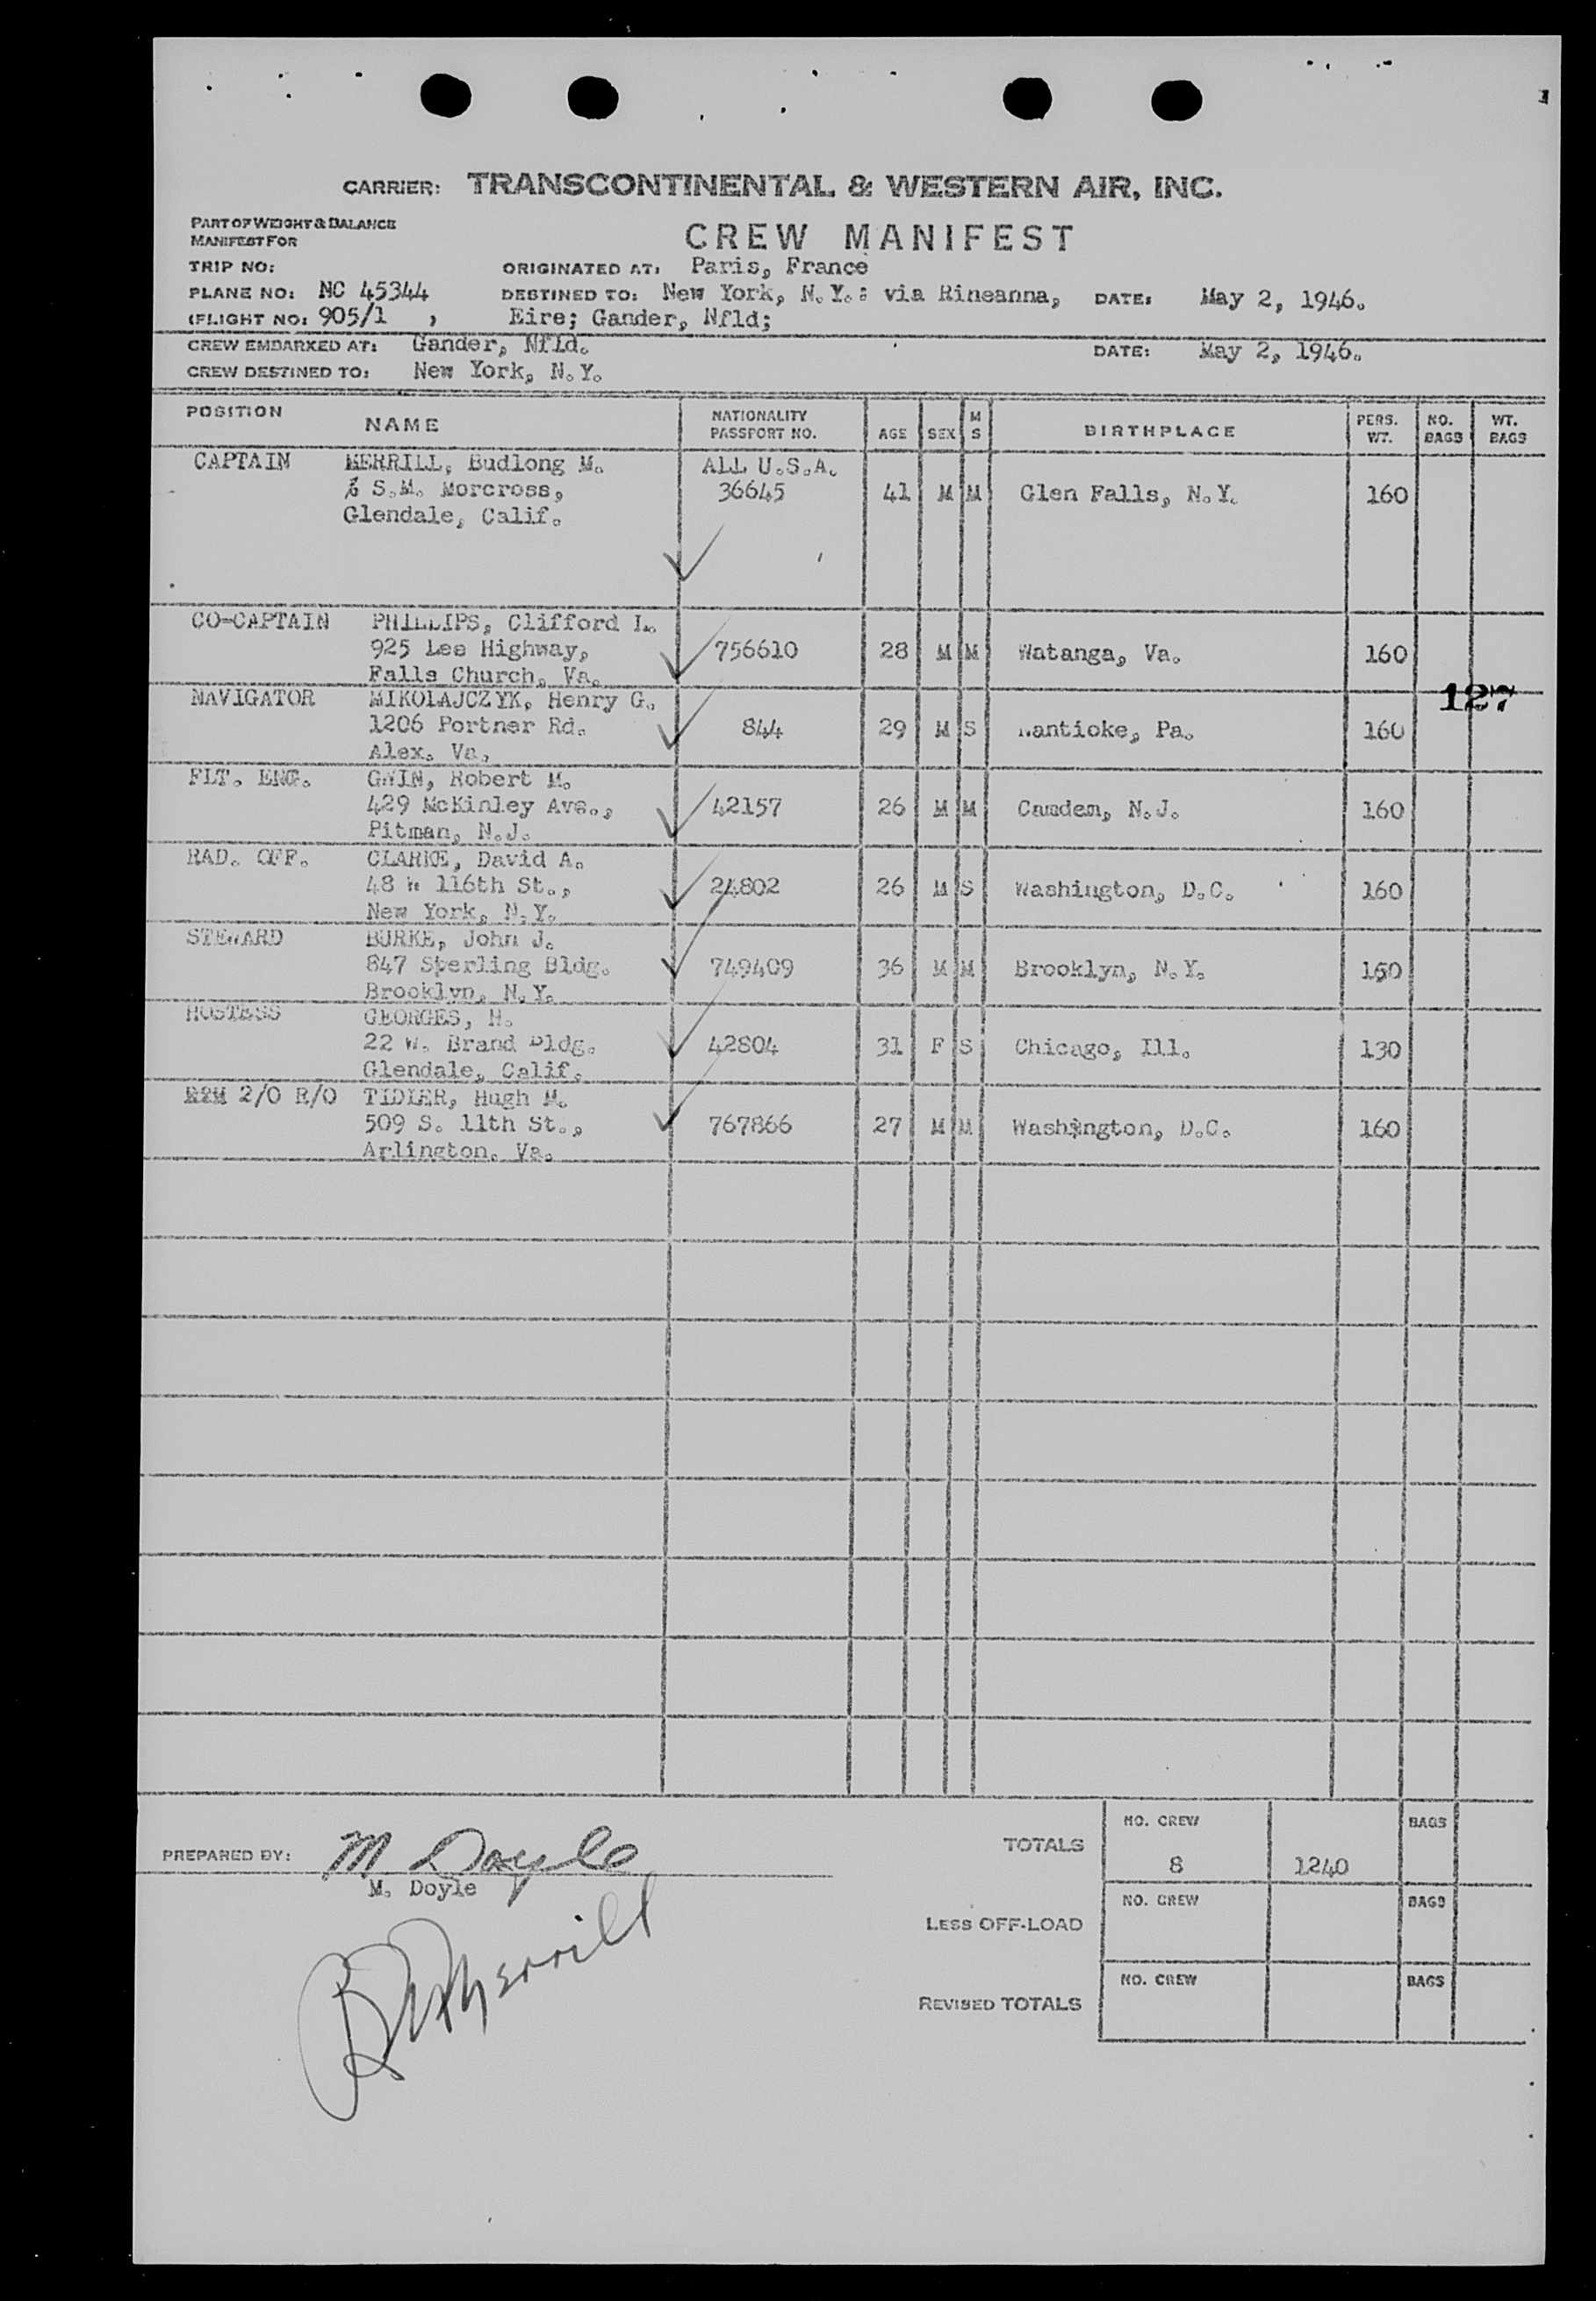 CARRIER: TRANSCONTINENTAL & WESTERN AIR, INC.
PART OF WEIGHT & BALANCE
MANIFEST FOR
CREW MANIFEST
TRIP NO: ORIGINATED AT: Paris, France
PLANE NO: NC 45344 DESTINED TO: New York, N.Y.: via Rineanna, DATE: May 2, 1946.
(FLIGHT NO: 905/1 , Eire; Gander, Nfld;
CREW EMBARKED AT: Gander, Nfld. DATE: May 2, 1946.
CREW DESTINED TO: New York, N.Y.
POSITION NAME NATIONALITY PASSPORT NO. AGE SEX M S BIRTHPLACE PERS. WT. NO. BAGS WT. BAGS
CAPTAIN MERRILL, Budlong M. ALL U.S.A.
% S.M. Morcross, 36645 41 M M Glen Falls, N.Y. 160
Glendale, Calif.
CO-CAPTAIN PHILLIPS, Clifford L.
925 Lee Highway, 756610 28 M M Watanga, Va. 160
Falls Church, Va.
127
NAVIGATOR MIKOLAJCZYK, Henry G.
1206 Portner Rd. 844 29 M S Nantioke, Pa. 160
Alex. Va.
FLT. ENG. GWIN, Robert M.
429 McKinley Ave., 42157 26 M M Camden, N.J. 160
Pitman, N.J.
RAD. OFF. CLARKE, David A.
48 W 116th St., 24802 26 M S Washington, D.C. 160
New York, N.Y.
STEWARD BURKE, John J.
847 Sterling Bldg. 749409 36 M M Brooklyn, N.Y. 150
Brooklyn, N.Y.
HOSTESS GEORGES, H.
22 W. Brand Bldg. 42804 31 F S Chicago, Ill. 130
Glendale, Calif.
2/O R/O TIDLER, Hugh M.
509 S. 11th St., 767866 27 M M Washington, D.C. 160
Arlington, Va.
PREPARED BY: M Doyle
M. Doyle
BM Merrill
TOTALS NO. CREW 8 1240 BAGS
LESS OFF-LOAD NO. CREW BAGS
REVISED TOTALS NO. CREW BAGS